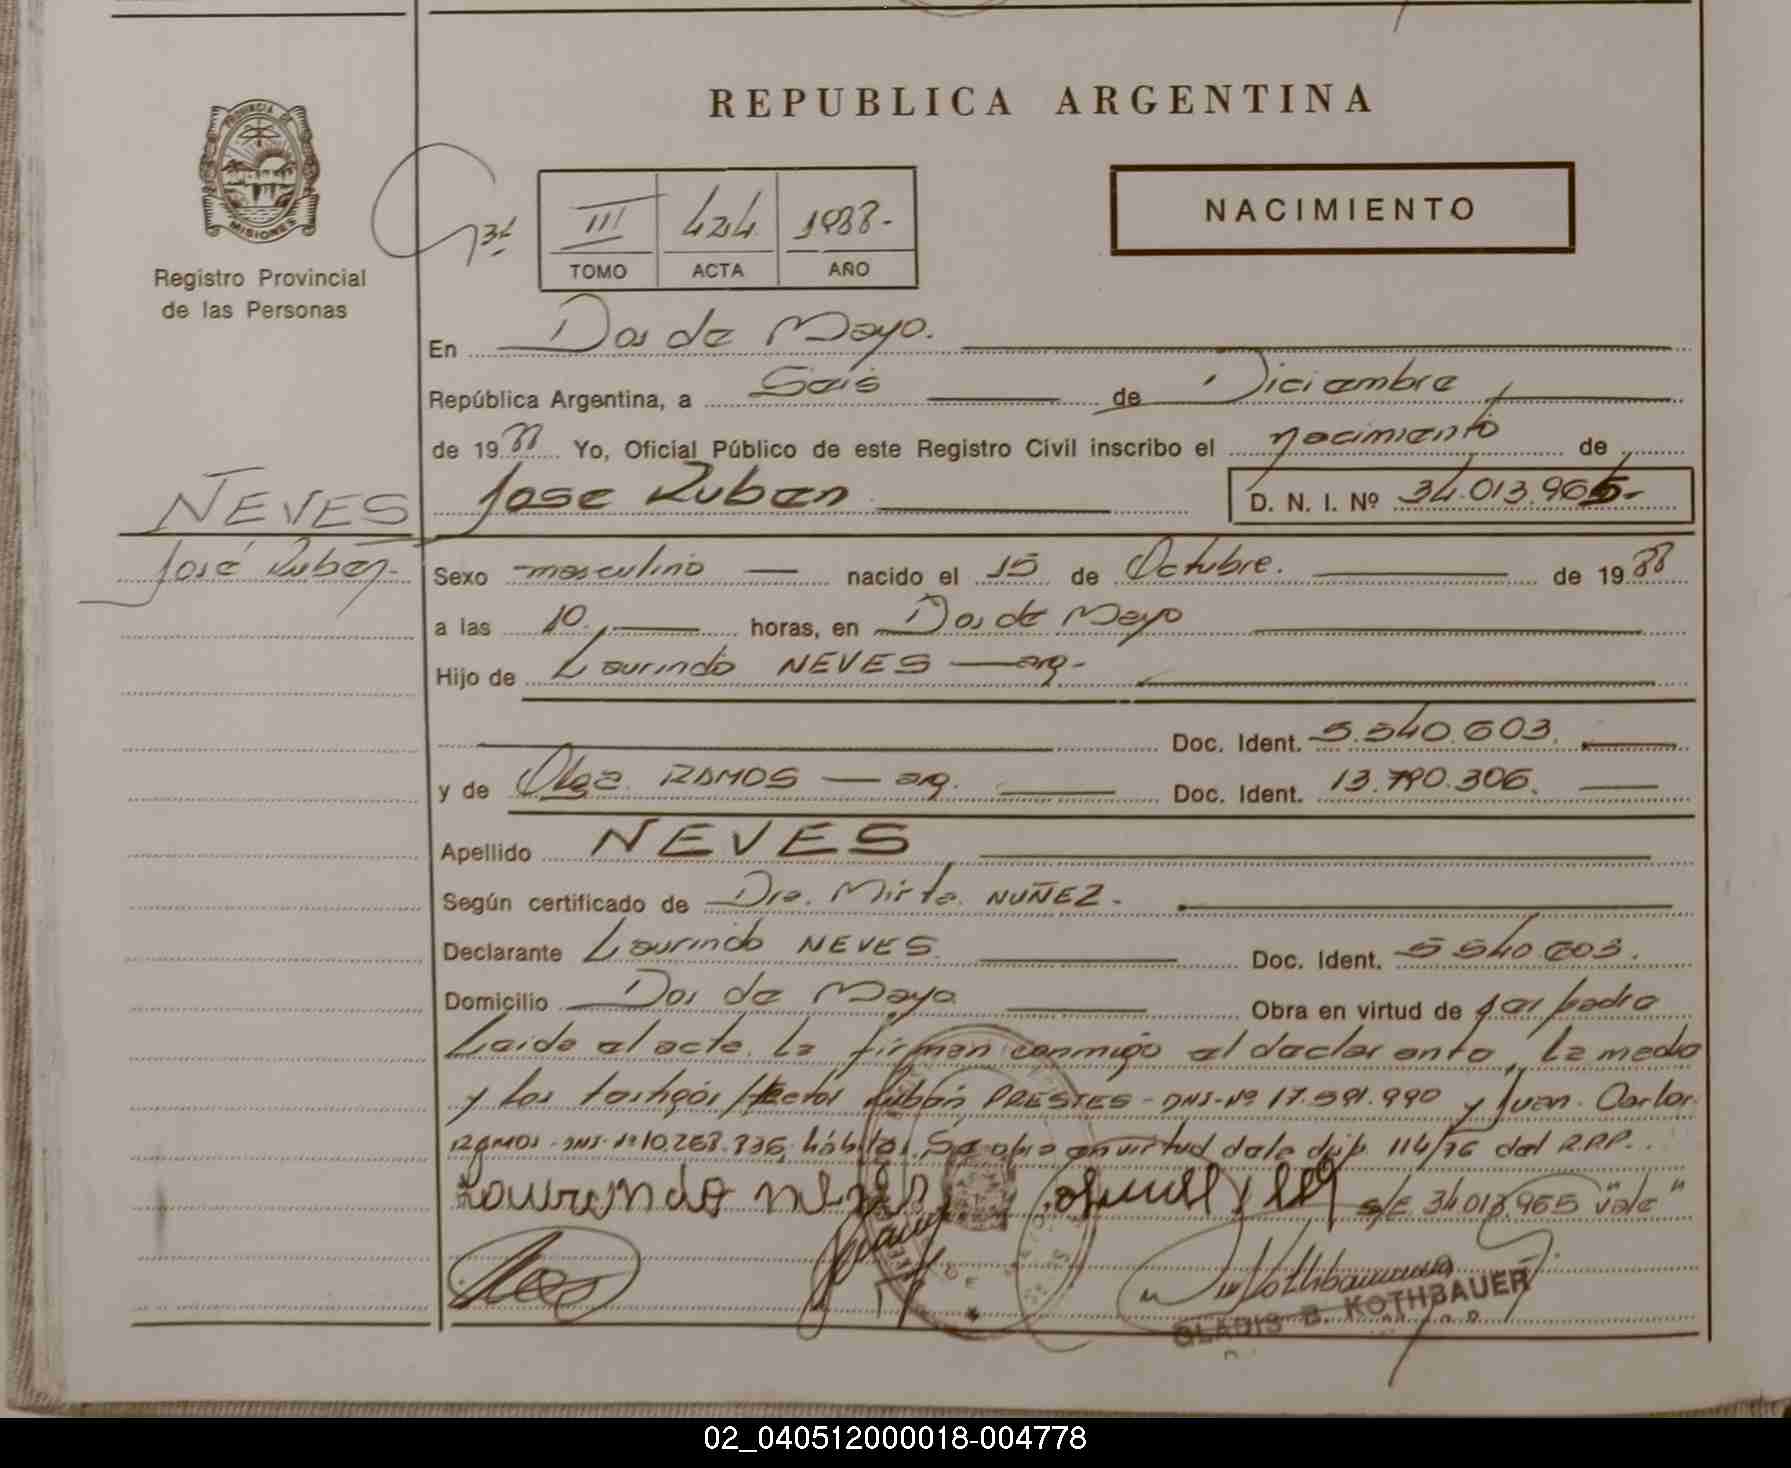 REPUBLICA ARGENTINA
PROVINCIA DE
MISIONES
Registro Provincial
de las Personas
III 424 1988-
TOMO ACTA AÑO
NACIMIENTO
En Dos de Mayo.
República Argentina, a Seis de Diciembre
de 1988 Yo, Oficial Público de este Registro Civil inscribo el nacimiento de
NEVES
José Rubén.
Jose Ruben D. N. I. Nº 34.013.965-
Sexo masculino nacido el 15 de Octubre. de 1988
a las 10 horas, en Dos de Mayo
Hijo de Laurindo NEVES — arg-
Doc. Ident. 5.540.603.
y de Olga RAMOS — arg. Doc. Ident. 13.790.306.
Apellido NEVES
Según certificado de Dra. Mirta NUÑEZ.
Declarante Laurindo NEVES. Doc. Ident. 5540.603.
Domicilio Dos de Mayo Obra en virtud de ser padre
Leida el acta, la firman conmigo el declarante, la madre
y los testigos Hector Rubén PRESTES - DNI-Nº 17.591.990 y Juan Carlos
RAMOS-DNI-Nº 10.268.836, hábiles. Se obra en virtud de la disp. 114/76 del R.P.P.
Laurindo neves s/E 34.013.965 "vale"
GLADIS B. KOTHBAUER
02_040512000018-004778